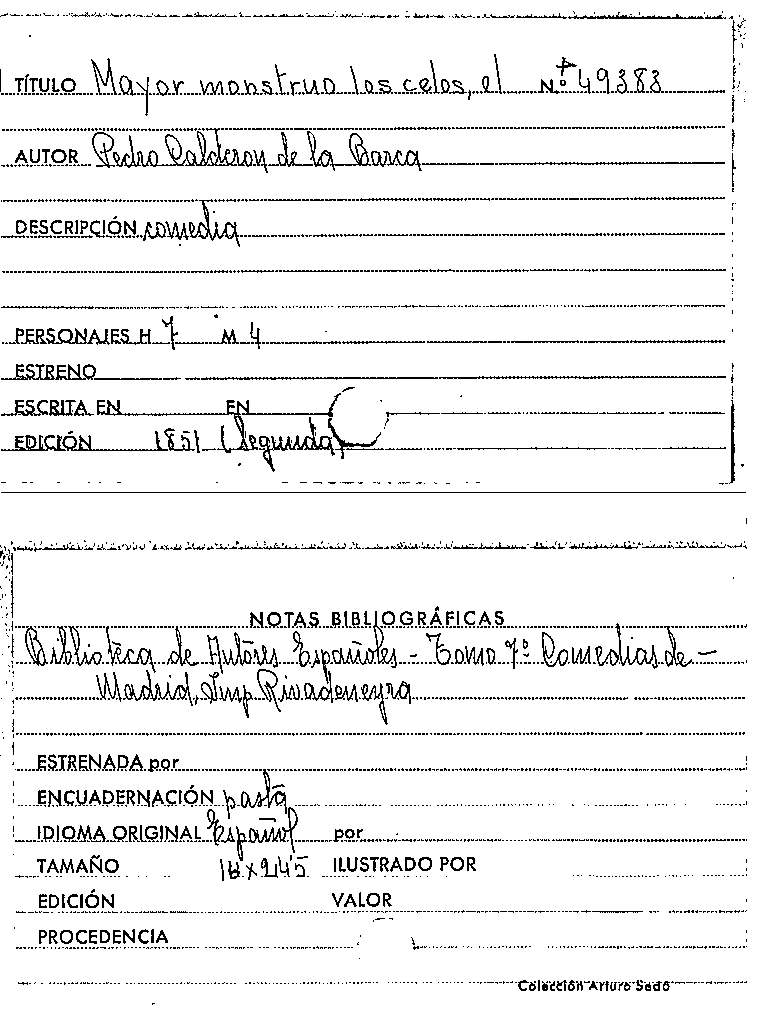 TÍTULO Mayor monstruo los celos, el Nº 49383
AUTOR Pedro Calderon de la Barca
DESCRIPCIÓN comedia
PERSONAJES H 7 M 4
ESTRENO
ESCRITA EN EN
EDICIÓN 1851 (Segunda)
NOTAS BIBLIOGRÁFICAS
Biblioteca de Autores Españoles - Tomo 7º Comedias de -
Madrid, Imp Rivadeneyra
ESTRENADA por
ENCUADERNACIÓN pasta
IDIOMA ORIGINAL Español por
TAMAÑO ILUSTRADO POR
EDICIÓN VALOR
PROCEDENCIA
Colección Arturo Sedó